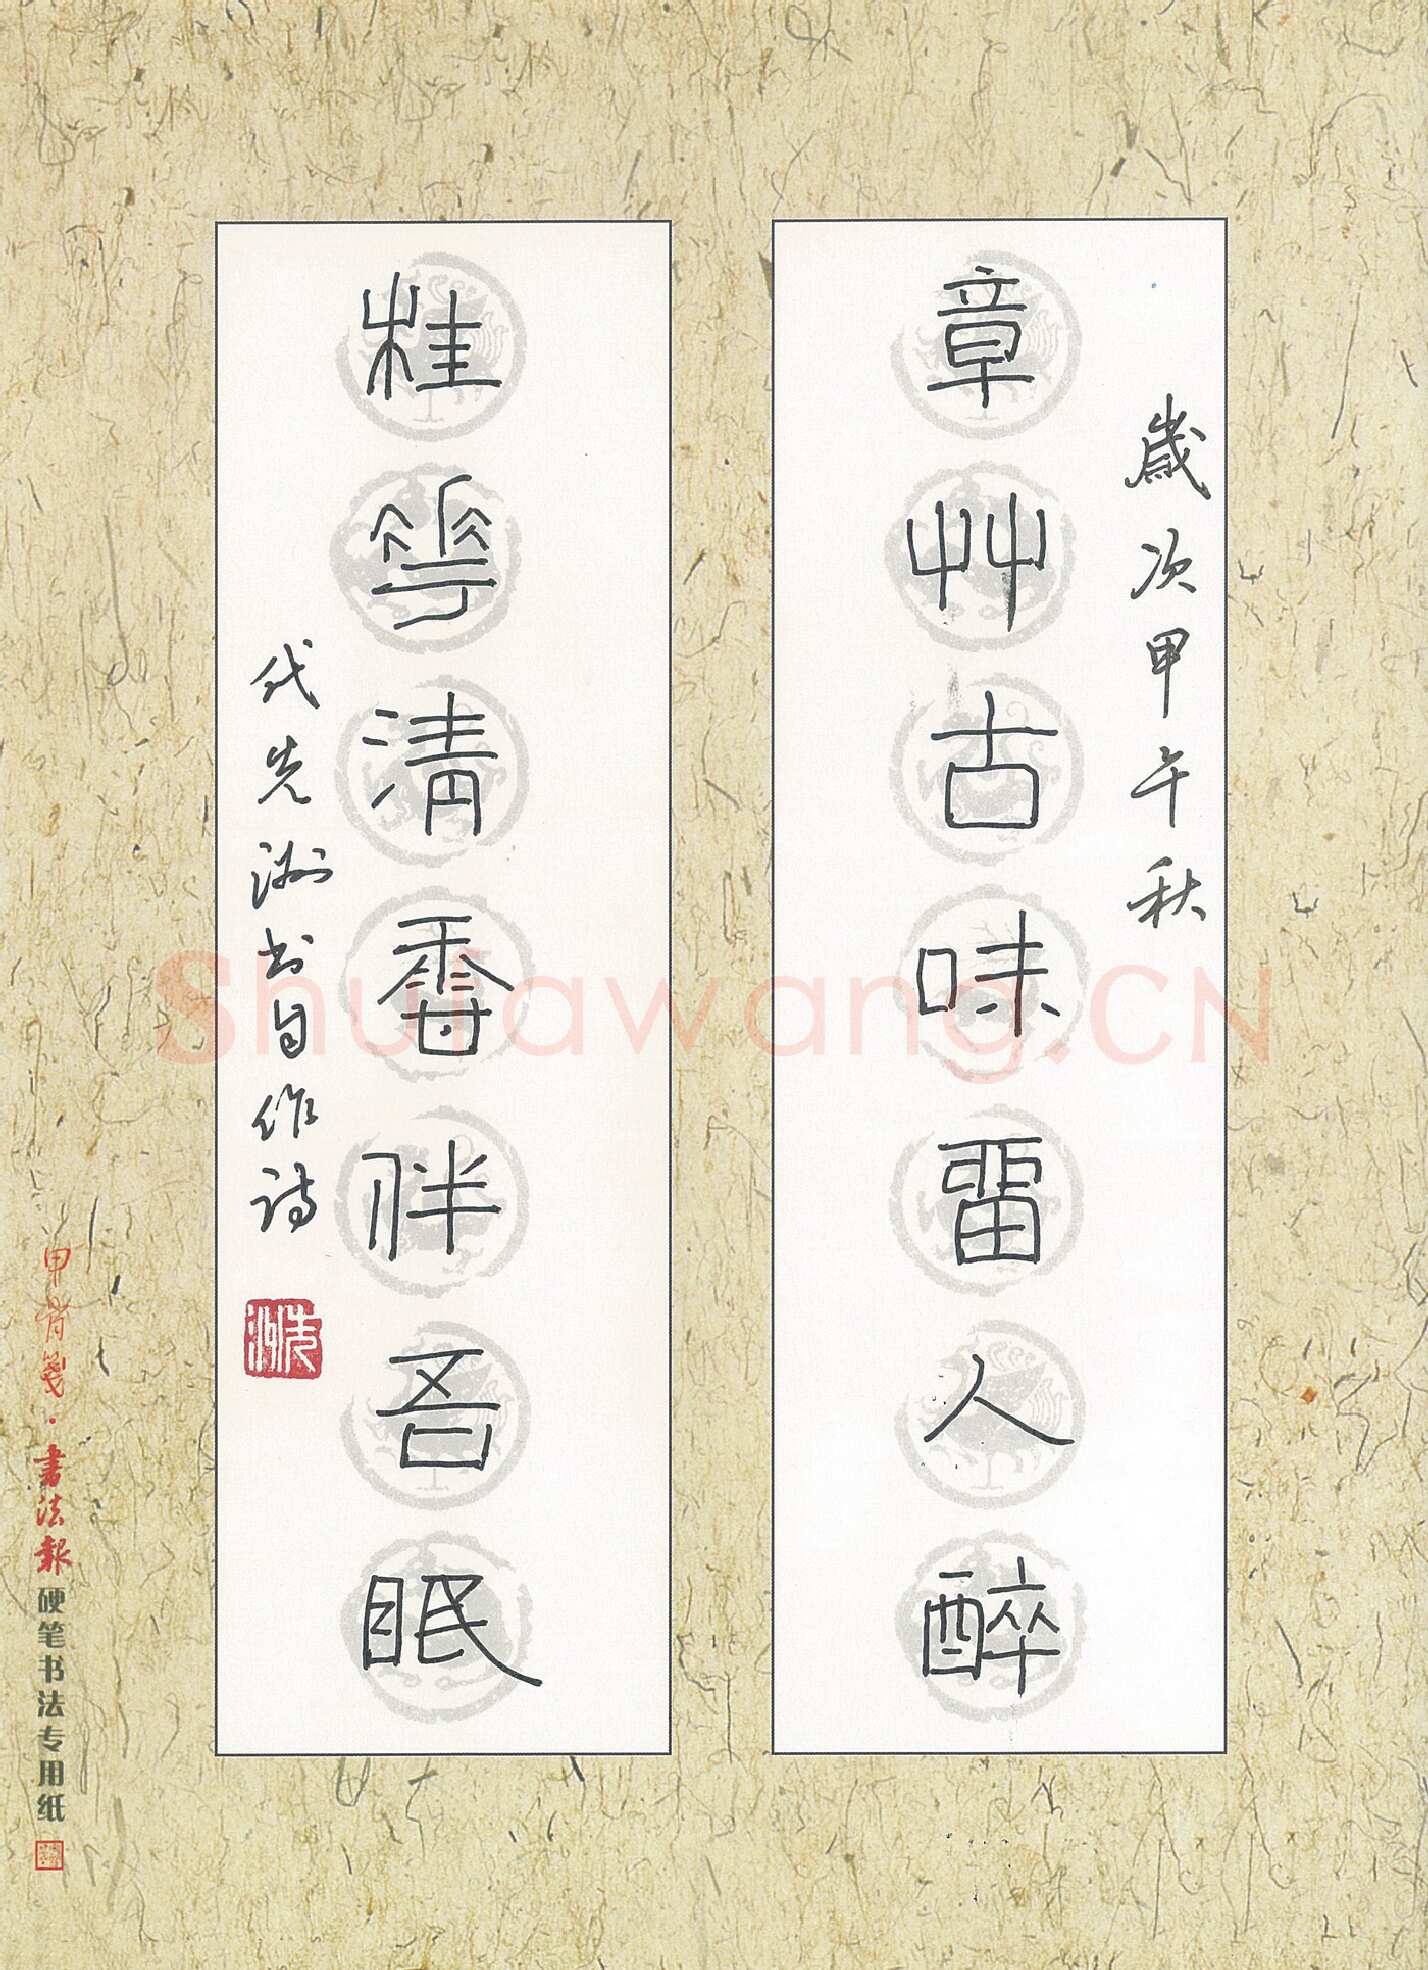 歲次甲午秋
章艸古味畱人醉
桂華清香伴吾眠
代先洲书自作诗
先洲
甲骨笺·書法報硬笔书法专用纸
Shufawang.CN